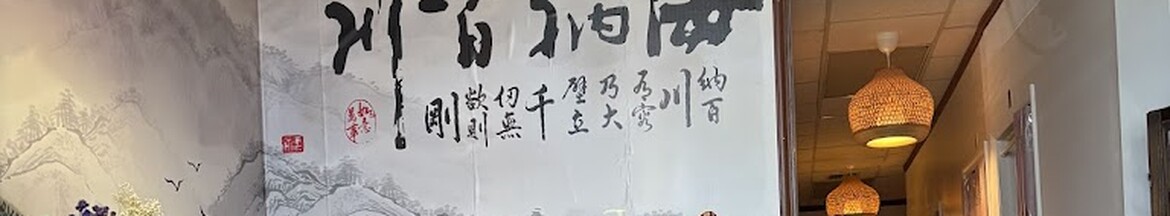 海納百川
納百
川
有容
乃大
壁立
千
仞無
欲則
剛
如意
萬事